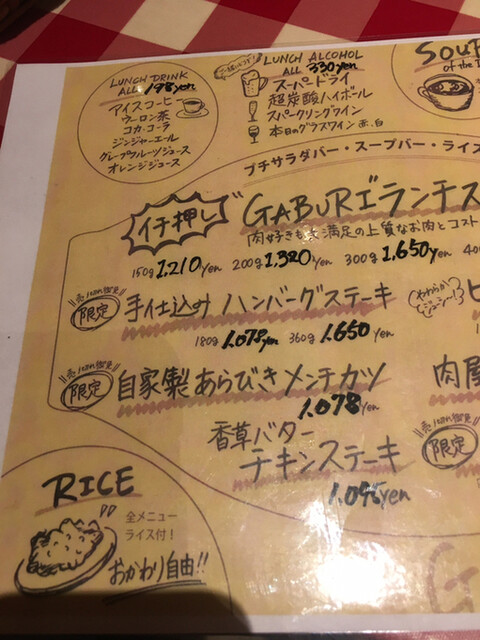 LUNCH DRINK
ALL 198yen
アイスコーヒー
ウーロン茶
コカ・コーラ
ジンジャーエール
グレープフルーツジュース
オレンジジュース
LUNCH ALCOHOL
ALL 330yen
スーパードライ
超炭酸ハイボール
スパークリングワイン
本日のグラスワイン 赤、白
SOUP
of the
プチサラダバー・スープバー・ライス
イチ押し
GABURIランチス
肉好きも 満足の上質なお肉とコスト
150g 1,210yen 200g 1,320yen 300g 1,650yen 40
限定
手仕込みハンバーグステーキ
180g 1,078yen 360g 1,650yen
やわらか
ジューシー!
限定
自家製あらびきメンチカツ
1,078yen
肉屋
香草バター
チキンステーキ
1,045yen
限定
RICE
全メニュー
ライス付!
おかわり自由!!